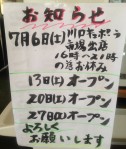 お知らせ
7月6日(土)川口ナボラ
市場出店
16時〜21時
の為お休み
13日(土)オープン
20日(土)オープン
27日(土)オープン
よろしく
お願いします